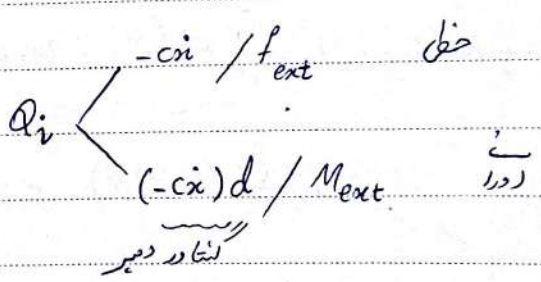 -cẋ / f_ext خطی
Q_i
(-cẋ)d / M_ext دورانی
گشتاور دمپر